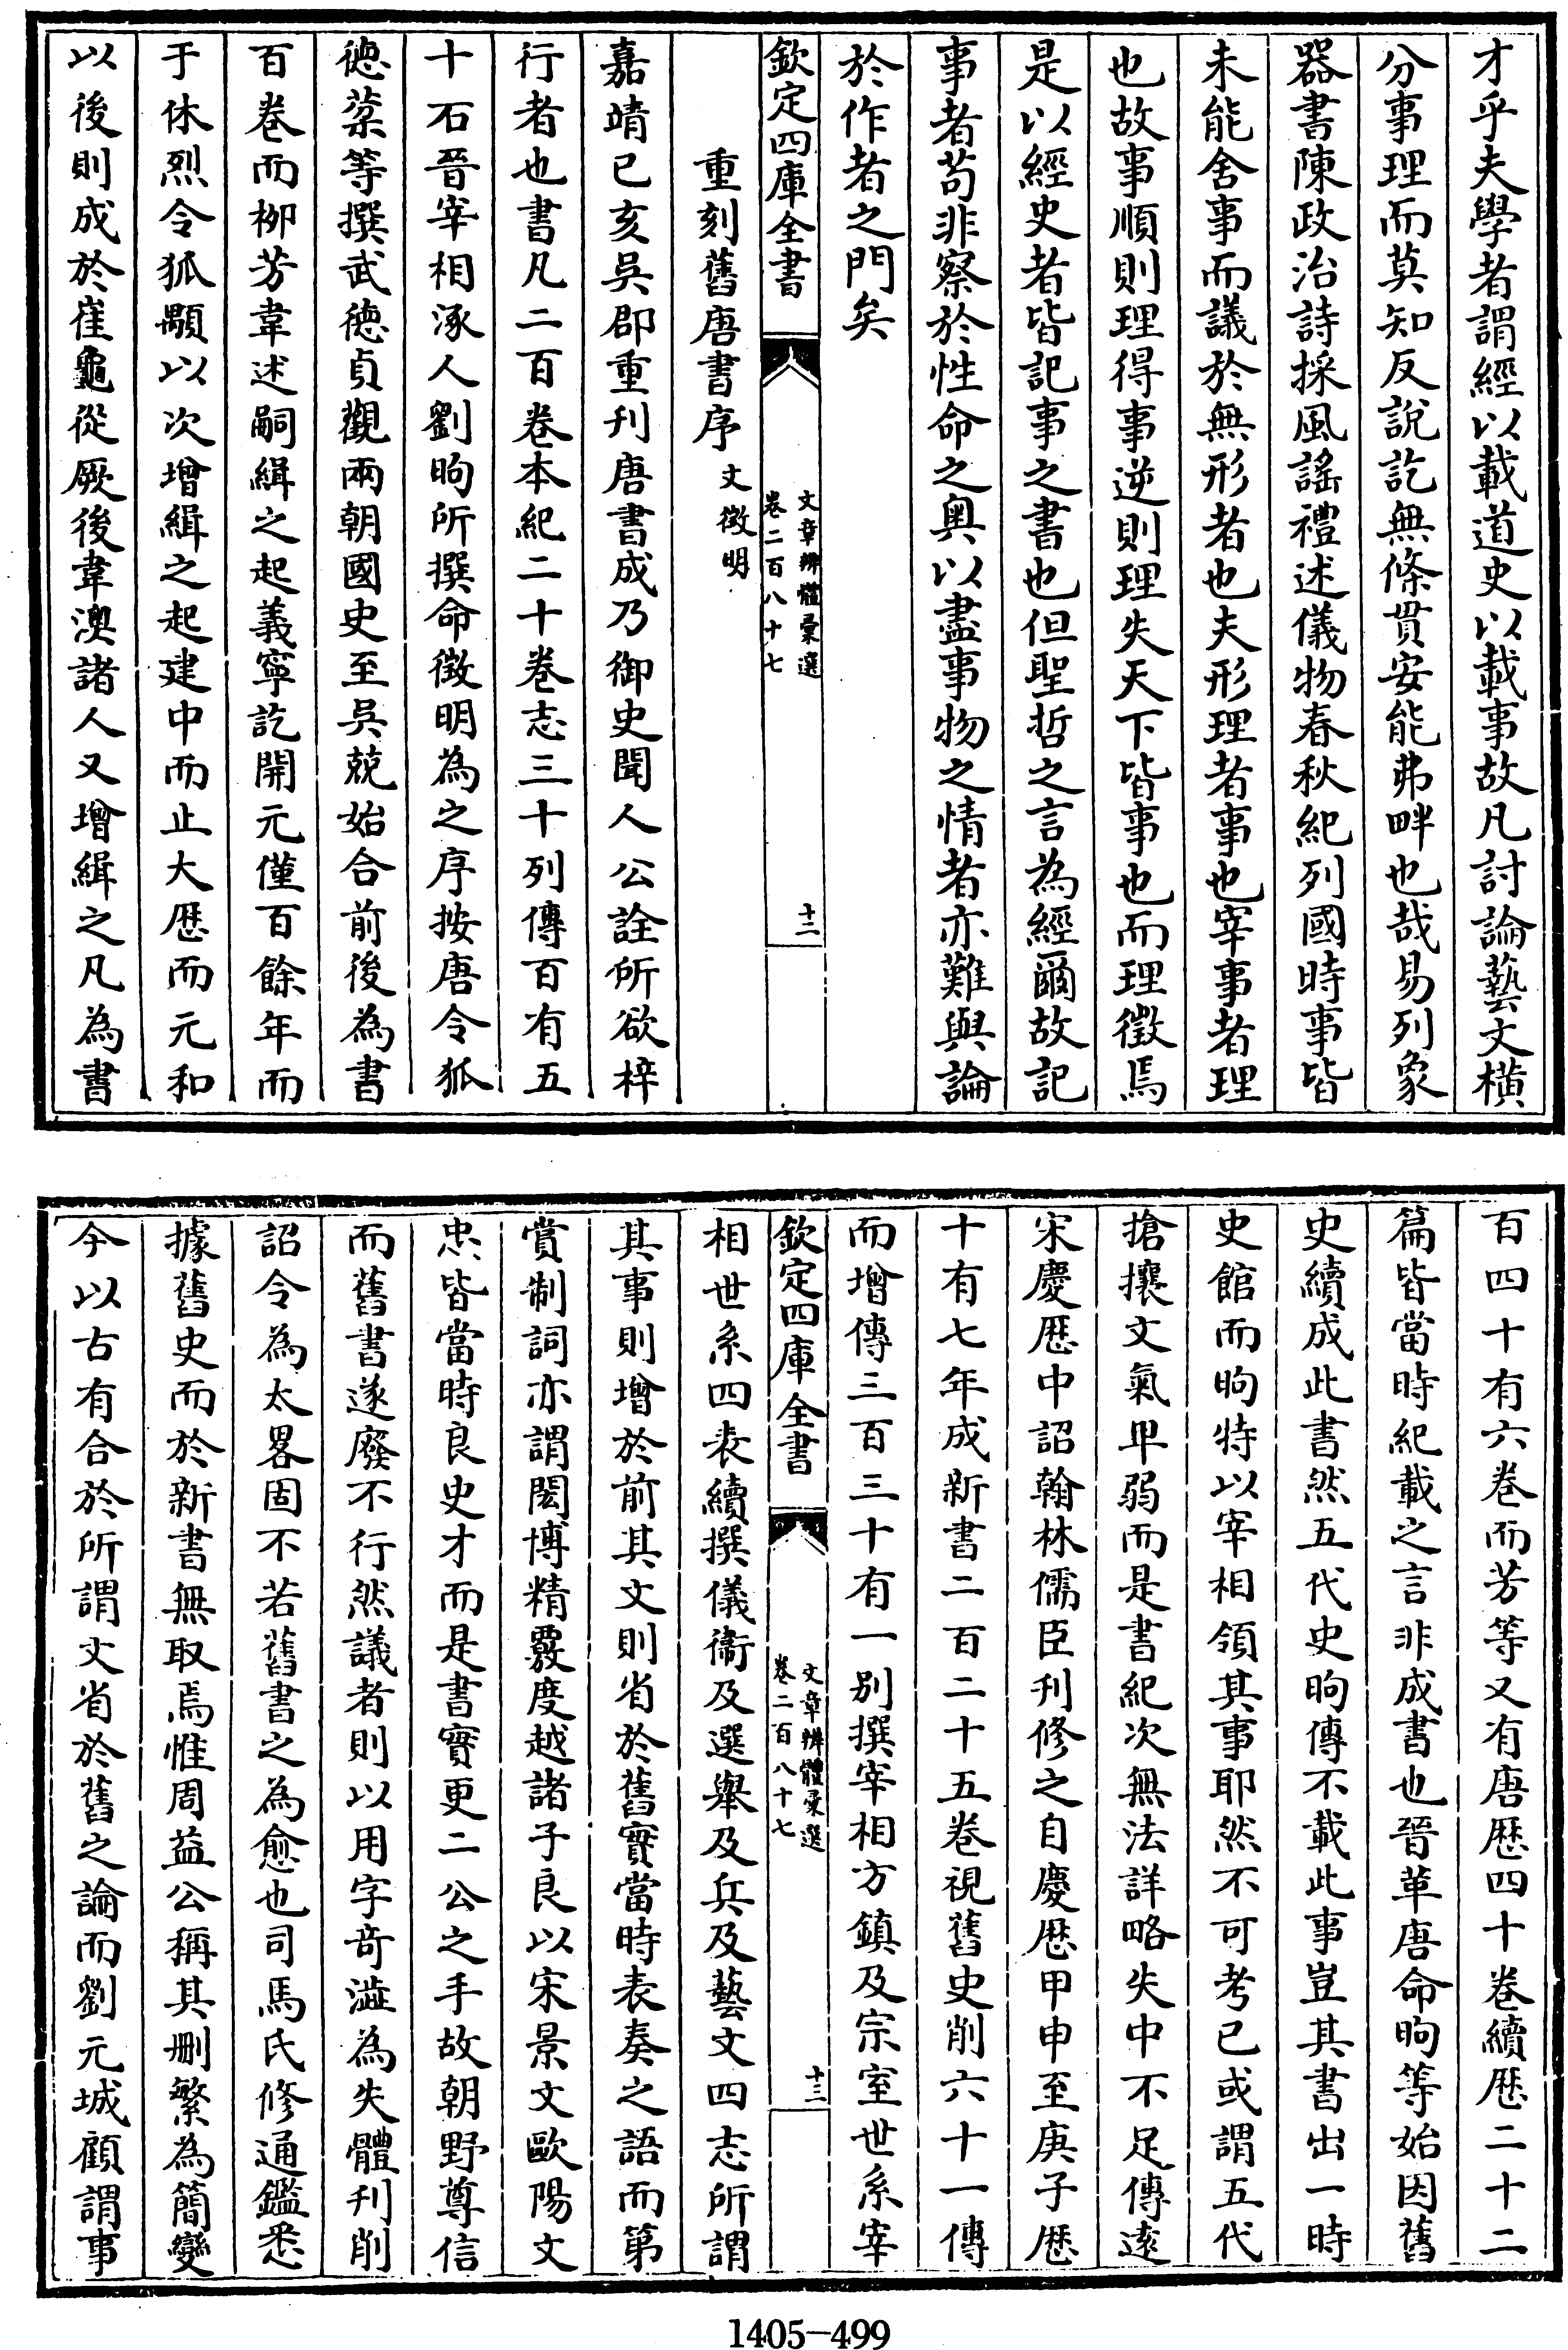 才乎夫學者謂經以載道史以載事故凡討論藝文橫
分事理而莫知反說訖無條貫安能弗畔也哉易列象
器書陳政治詩採風謡禮述儀物春秋紀列國時事皆
未能舍事而議於無形者也夫形理者事也宰事者理
也故事順則理得事逆則理失天下皆事也而理徵焉
是以經史者皆記事之書也但聖哲之言為經爾故記
事者苟非察於性命之奥以盡事物之情者亦難與論
於作者之門矣
欽定四庫全書
文章辨體彙選
卷二百八十七
十二
重刻舊唐書序 文徵明
嘉靖已亥吳郡重刊唐書成乃御史聞人公詮所欲梓
行者也書凡二百卷本紀二十卷志三十列傳百有五
十石晉宰相涿人劉昫所撰命徵明為之序按唐令狐
徳棻等撰武徳貞觀兩朝國史至吳兢始合前後為書
百卷而柳芳韋述嗣緝之起義寧訖開元僅百餘年而
于休烈令狐顒以次增緝之起建中而止大厯而元和
以後則成於崔龜從厥後韋澳諸人又增緝之凡為書
百四十有六卷而芳等又有唐厯四十卷續厯二十二
篇皆當時紀載之言非成書也晉革唐命昫等始因舊
史續成此書然五代史昫傳不載此事豈其書出一時
史館而昫特以宰相領其事耶然不可考已或謂五代
搶攘文氣卑弱而是書紀次無法詳略失中不足傳逺
宋慶厯中詔翰林儒臣刋修之自慶厯甲申至庚子厯
十有七年成新書二百二十五卷視舊史削六十一傳
而增傳三百三十有一别撰宰相方鎮及宗室世系宰
欽定四庫全書
文章辨體彙選
卷二百八十七
十三
相世系四表續撰儀衞及選舉及兵及藝文四志所謂
其事則增於前其文則省於舊實當時表奏之語而第
賞制詞亦謂閎博精覈度越諸子良以宋景文歐陽文
忠皆當時良史才而是書實更二公之手故朝野尊信
而舊書遂廢不行然議者則以用字竒澁為失體刋削
詔令為太畧固不若舊書之為愈也司馬氏修通鑑悉
據舊史而於新書無取焉惟周益公稱其刪繁為簡變
今以古有合於所謂文省於舊之論而劉元城顧謂事
1405—499